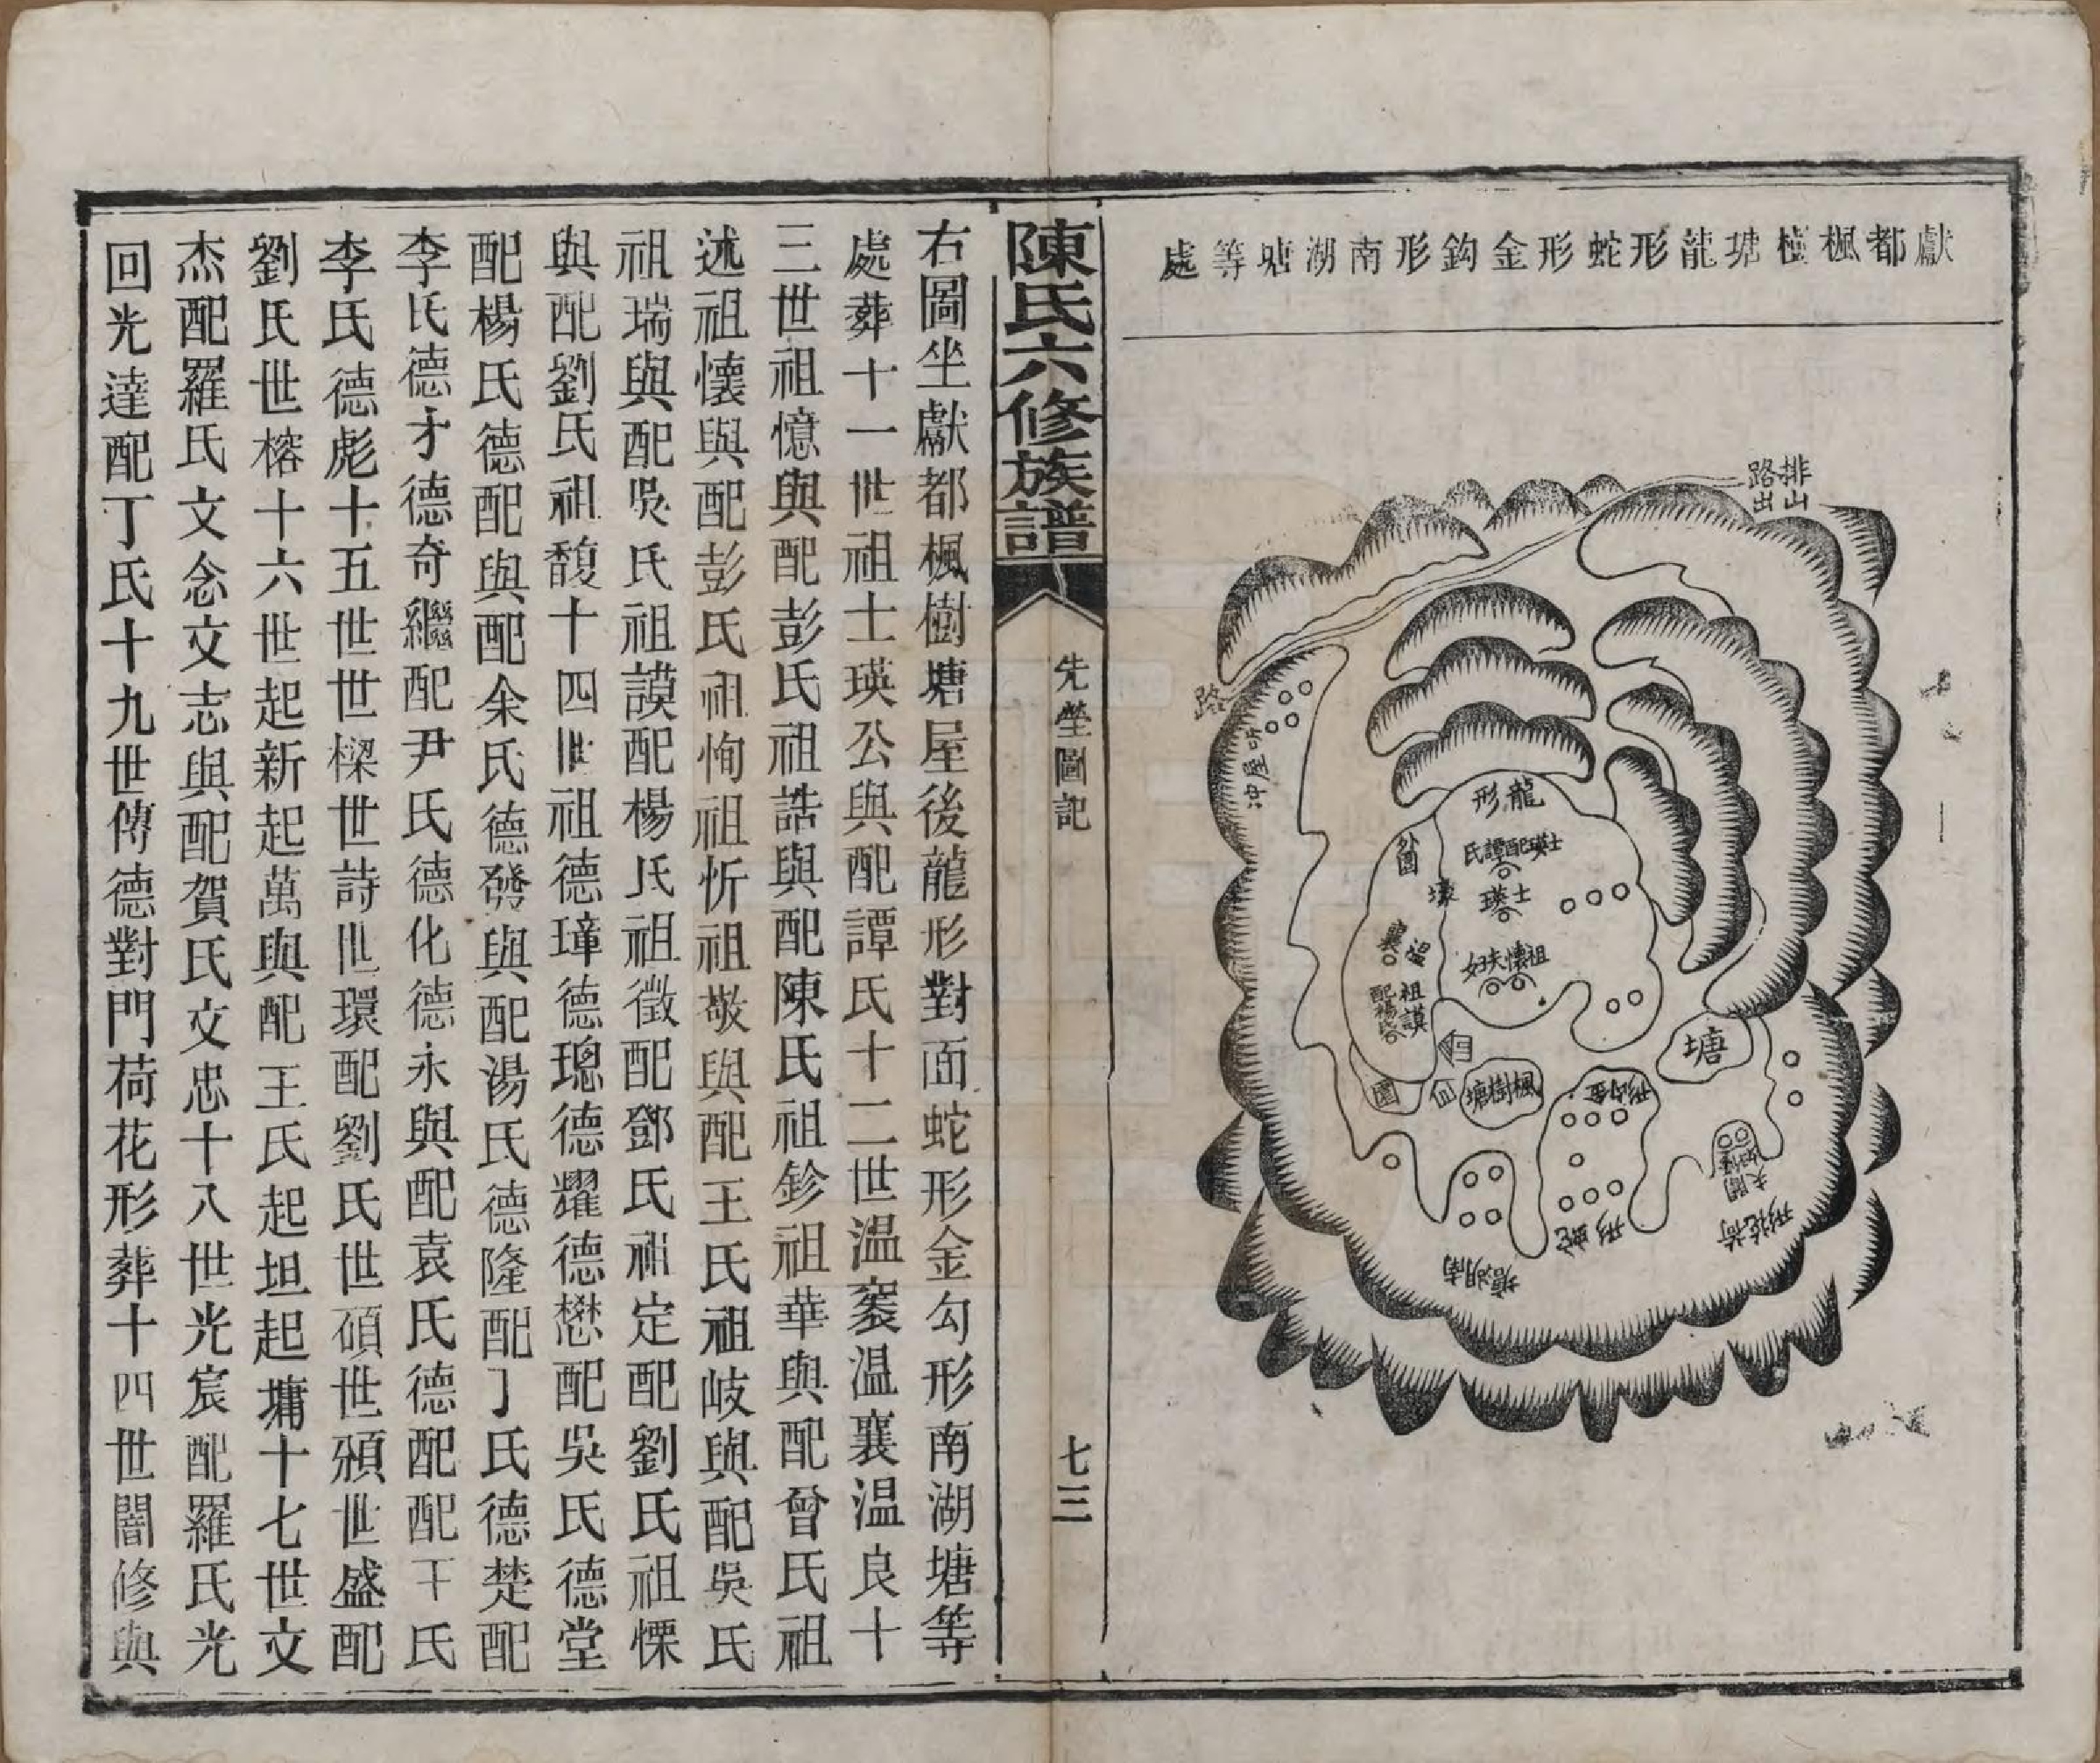 獻都楓樹塘龍形蛇形金鈎形南湖塘等處
排山
路出
路
冲屋
龍形
士瑛配譚氏
士瑛
祖懷夫妇
外圍
壕
温
襄
祖謨
配楊氏
園
楓樹塘
塘
金鈎形
蛇形
南湖塘
荷花形
陳氏六修族譜
先塋圖記
七三
右圖坐獻都楓樹塘屋後龍形對面蛇形金勾形南湖塘等
處葬十一世祖士瑛公與配譚氏十二世温褎温襄温良十
三世祖憶與配彭氏祖誥與配陳氏祖鉁祖華與配曾氏祖
述祖懷與配彭氏祖恂祖忻祖敬與配王氏祖岐與配吳氏
祖瑞與配吳氏祖謨配楊氏祖徵配鄧氏祖定配劉氏祖慄
與配劉氏祖馥十四世祖德瑋德璁德耀德懋配吳氏德堂
配楊氏德配與配余氏德發與配湯氏德隆配丁氏德楚配
李氏德才德奇繼配尹氏德化德永與配袁氏德配配干氏
李氏德彪十五世世樑世詩世環配劉氏世碩世頫世盛配
劉氏世榕十六世起新起萬與配王氏起坦起墉十七世文
杰配羅氏文念文志與配賀氏文忠十八世光宸配羅氏光
回光達配丁氏十九世傳德對門荷花形葬十四世闇修與